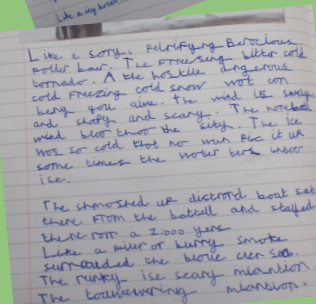 Like a icy
Like a sory. Pelrifying Ferocious
Poller bear. The Freeseng bitter cold
tornator. A the hostile dngerous
cold Freezing cold snow wot con
bery you aive. The wind is
and sharp and scary. The
wind bloo thoo the sity. The ice
was so cold that no mun Roc it up
some times the woter ters intoo
ise.
The shmoshed up distrord boat set
there From the battell and stayed
there For a 2.000 yens
Like a piller of burry smoke
surrouded the bloue cler sea.
The ise scary miantion
The touwering miantion.